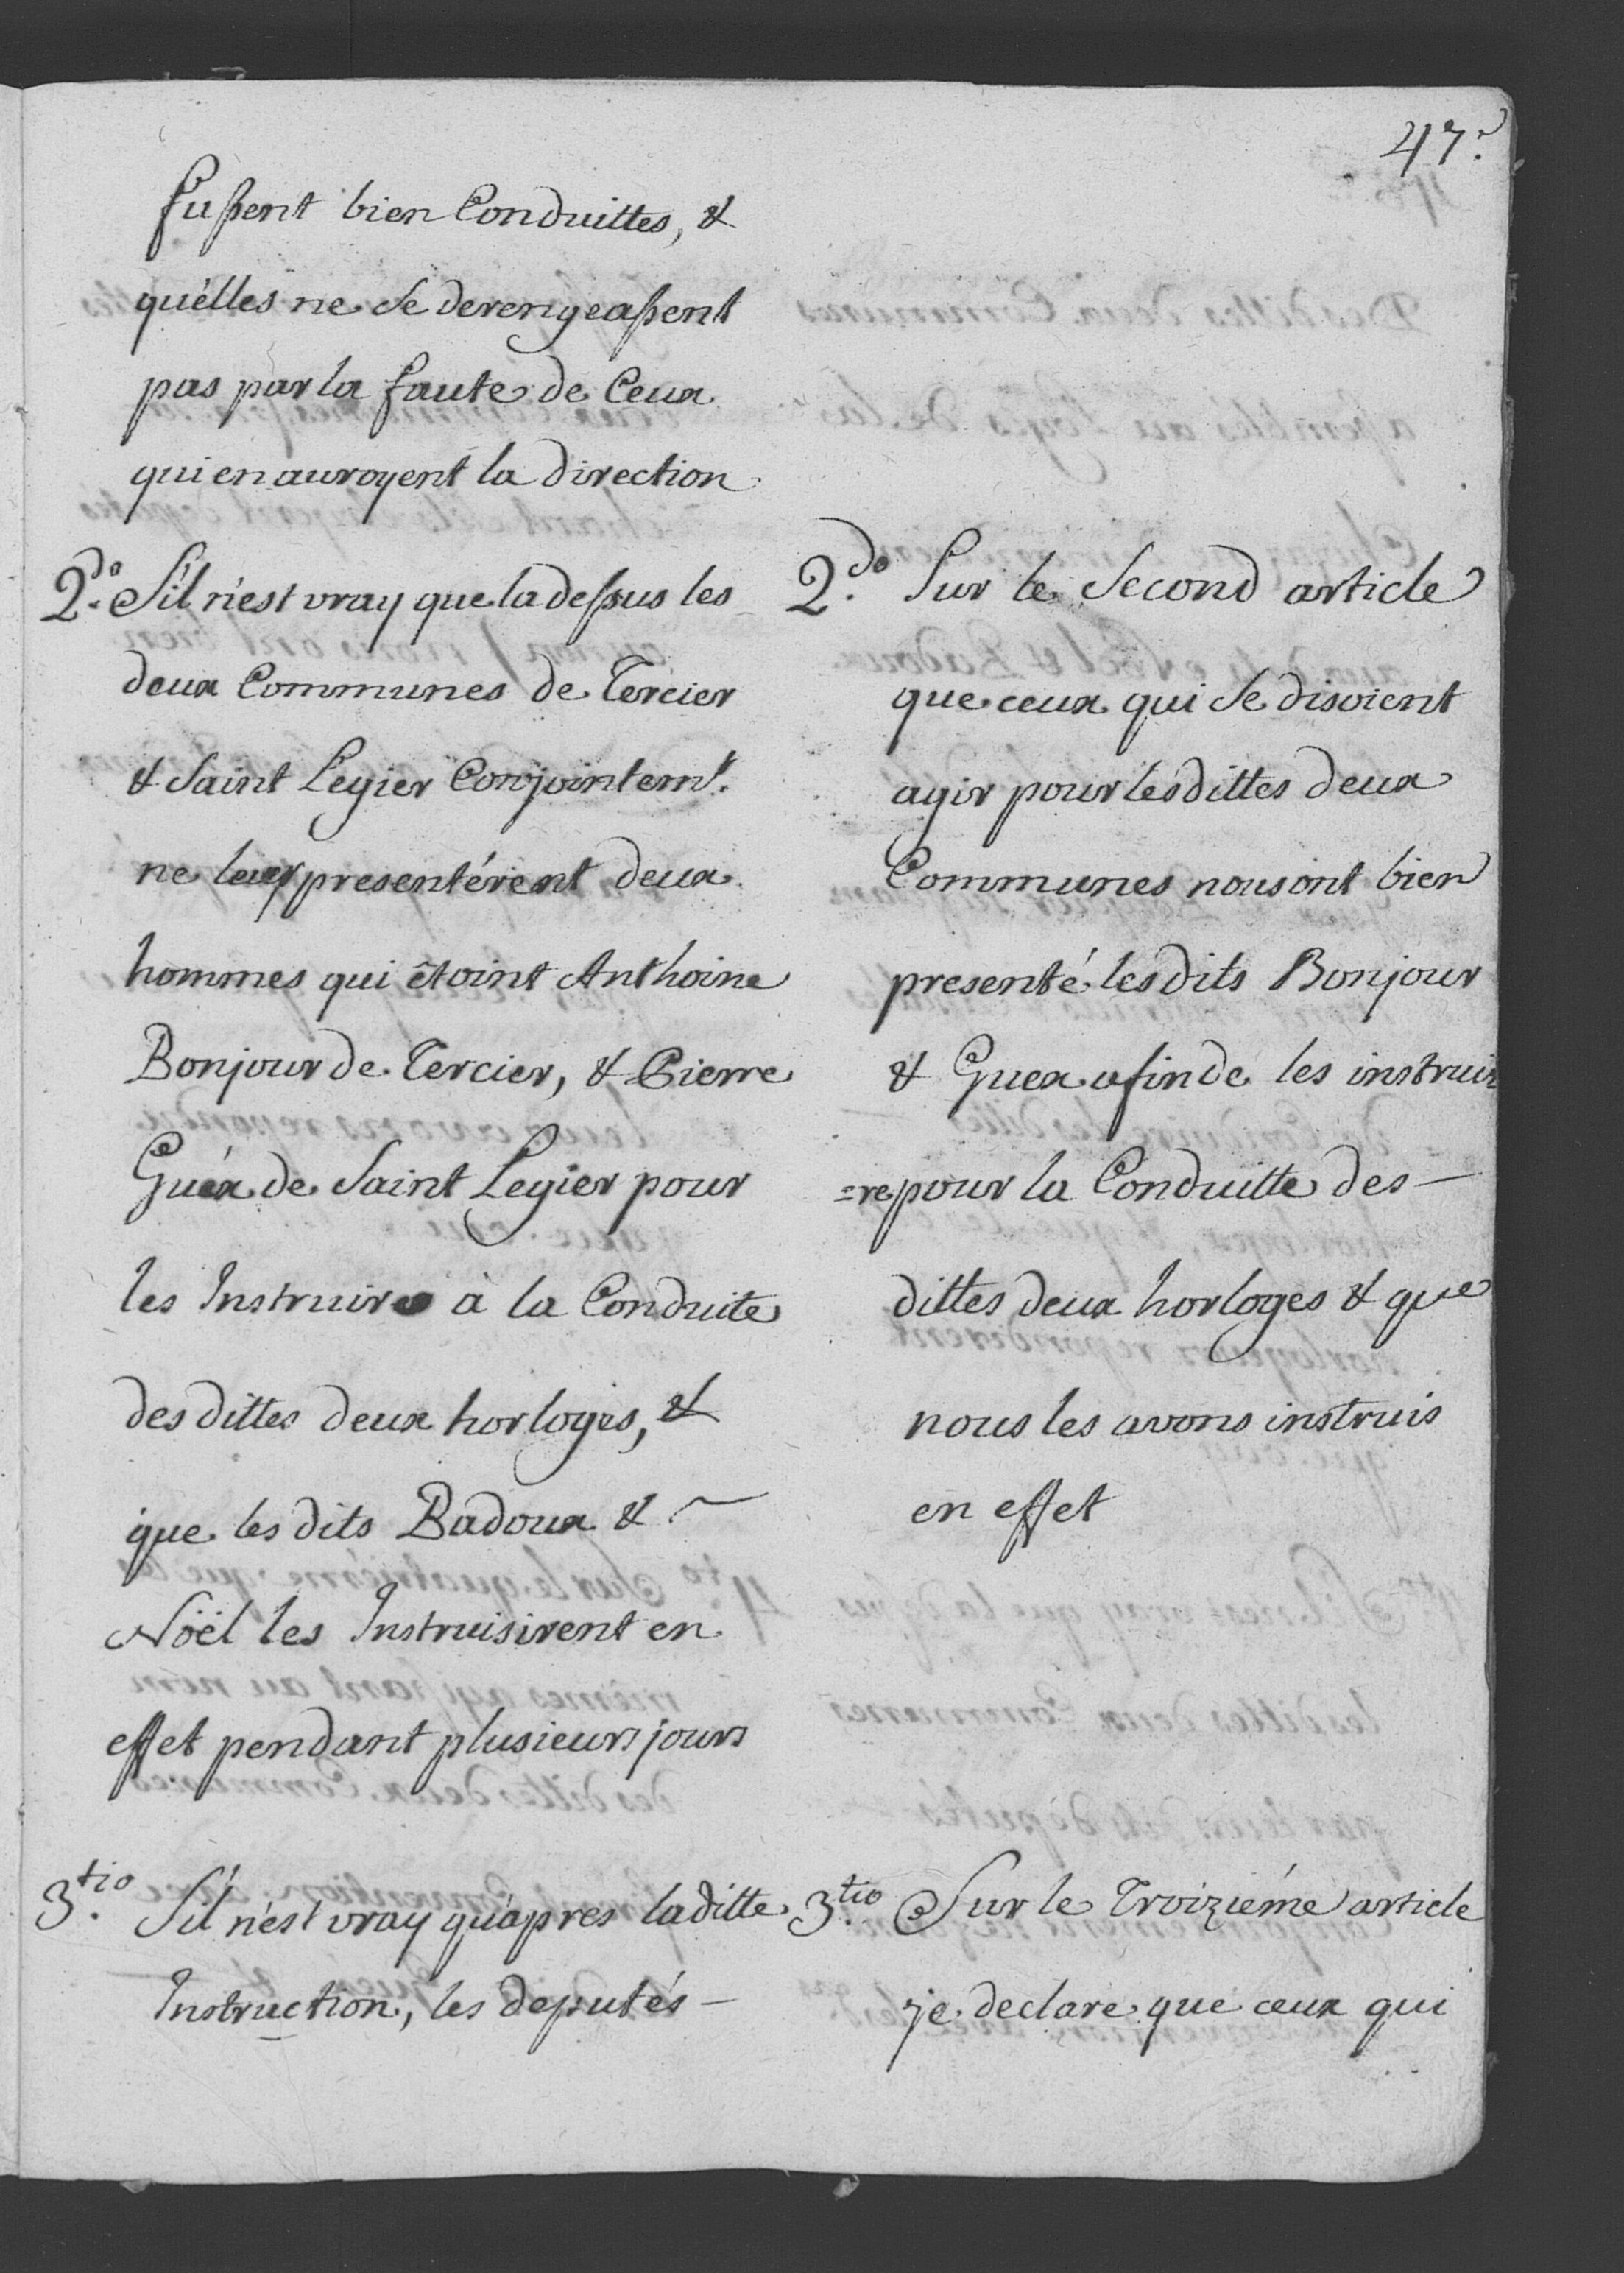 47.
fussent bien Conduittes, &
qu'élles ne se derengeassent
pas par la faute de Ceux
qui en auroyent la direction
2.do S'il n'est vray que la dessus les
deux Communes de Tercier
& Saint Legier Conjointemt.
ne leur presentérent deux
hommes qui êtoint Anthoine
Bonjour de Tercier, & Pierre
Guéx de Saint Legier pour
les Instruire à la Conduite
des dittes deux horloges, &
que les dits Badoux &
Nöël les Instruisirent en
effet pendant plusieurs jours
3.tio S'il n'est vray qu'apres la ditte
Instruction, les deputés
2.do Sur le Second article
que ceux qui se disoient
agir pour les dittes deux
Communes nous ont bien
presenté les dits Bonjour
& Guex afin de les instrui
=re pour la Conduitte des
dittes deux horloges & que
nous les avons instruis
en effet
3.tio Sur le Troiziéme article
je declare que ceux qui